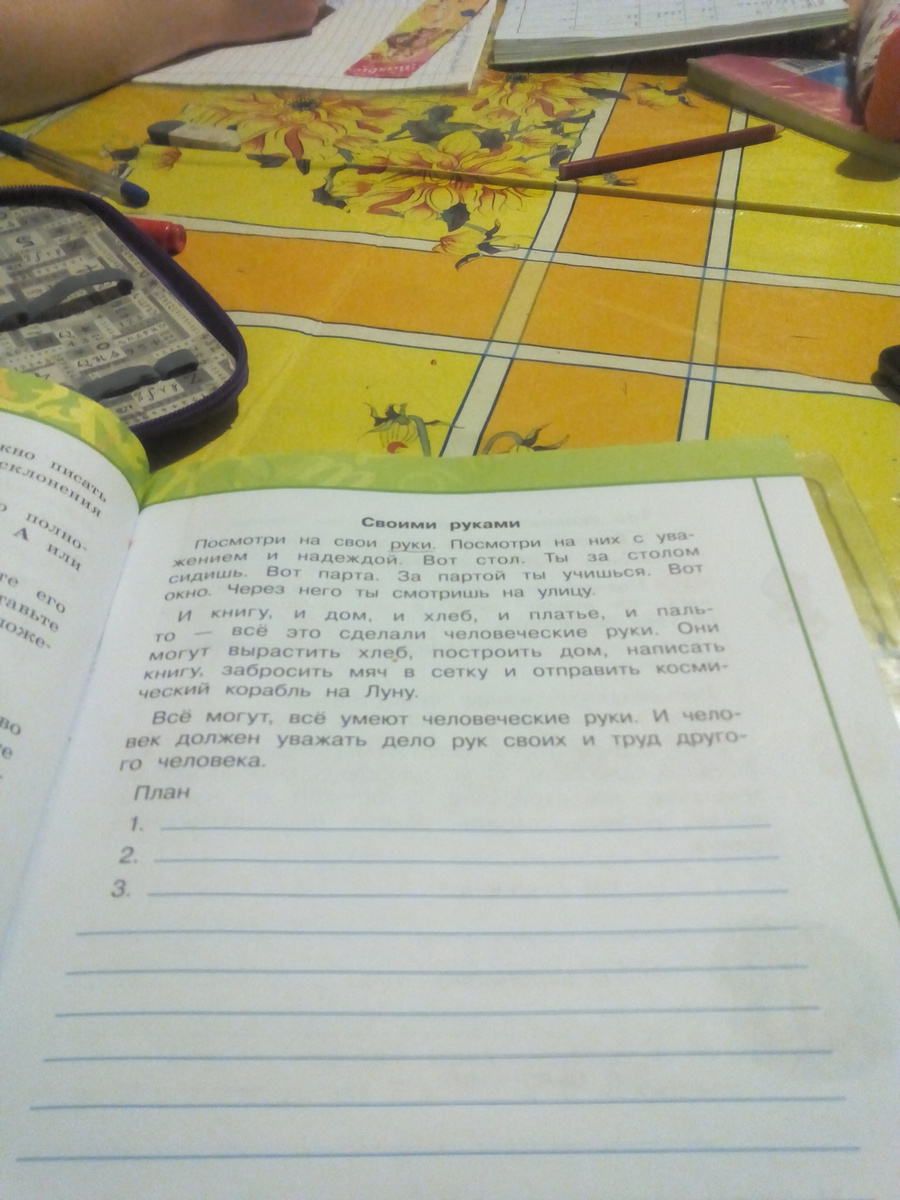 жно писать
склонения
о полно-
А или
те его
тавьте
ложе-
во
Своими руками
Посмотри на свои руки. Посмотри на них с ува-
жением и надеждой. Вот стол. Ты за столом
сидишь. Вот парта. За партой ты учишься. Вот
окно. Через него ты смотришь на улицу.
И книгу, и дом, и хлеб, и платье, и паль-
то — всё это сделали человеческие руки. Они
могут вырастить хлеб, построить дом, написать
книгу, забросить мяч в сетку и отправить косми-
ческий корабль на Луну.
Всё могут, всё умеют человеческие руки. И чело-
век должен уважать дело рук своих и труд друго-
го человека.
План
1.
2.
3.